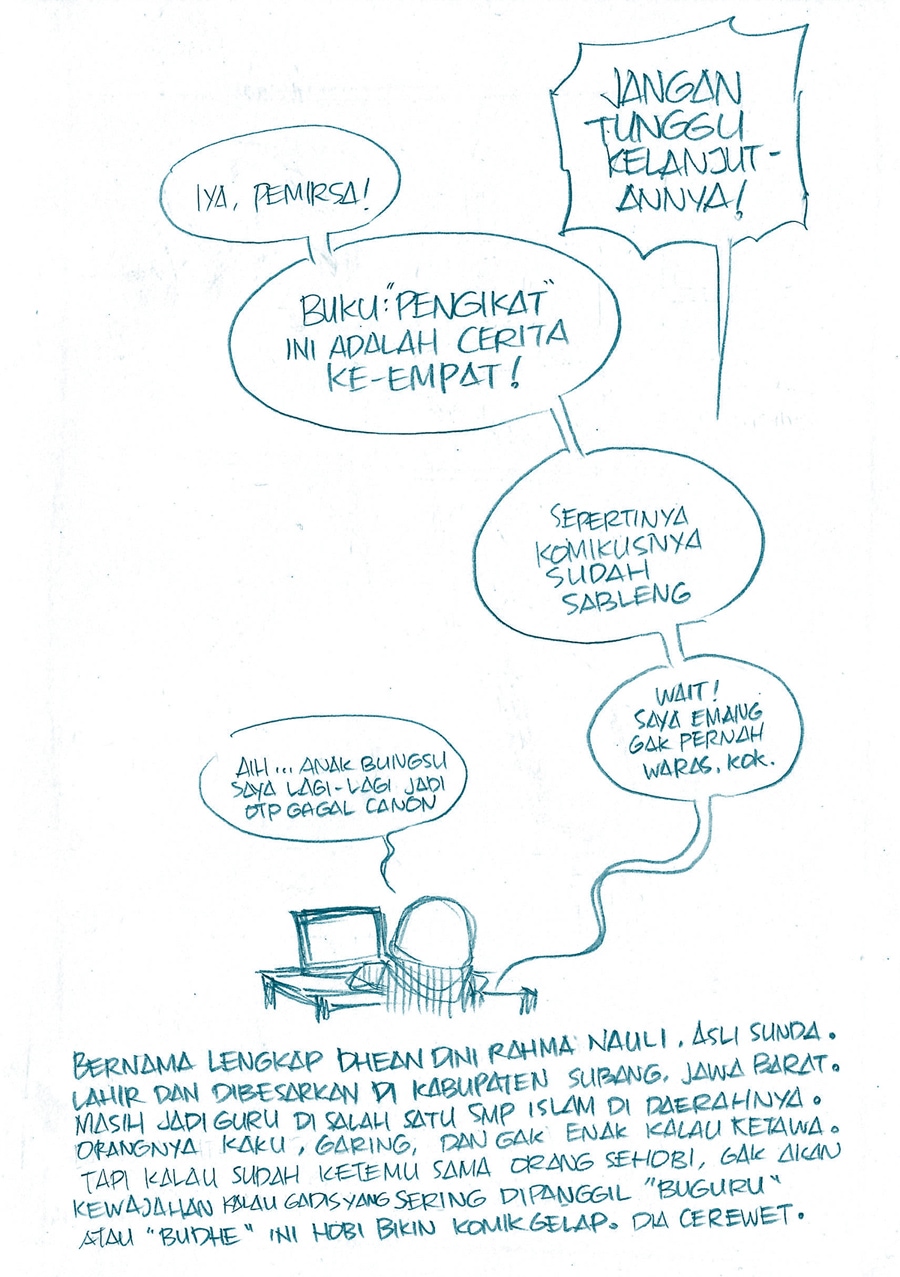 JANGAN
TUNGGU
KELANJUT-
ANNYA!
IYA, PEMIRSA!
BUKU: "PENGIKAT"
INI ADALAH CERITA
KE-EMPAT!
SEPERTINYA
KOMIKUSNYA
SUDAH
SABLENG
WAIT!
SAYA EMANG
GAK PERNAH
WARAS, KOK.
AIH... ANAK BUNGSU
SAYA LAGI-LAGI JADI
OTP GAGAL CANON
BERNAMA LENGKAP DHEAN DINI RAHMA NAULI. ASLI SUNDA.
LAHIR DAN DIBESARKAN DI KABUPATEN SUBANG, JAWA BARAT.
MASIH JADI GURU DI SALAH SATU SMP ISLAM DI DAERAHNYA.
ORANGNYA KAKU, GARING, DAN GAK ENAK KALAU KETAWA.
TAPI KALAU SUDAH KETEMU SAMA ORANG SEHOBI, GAK AKAN
KEWAJAHAN KALAU GADIS YANG SERING DIPANGGIL "BUGURU"
ATAU "BUDHE" INI HOBI BIKIN KOMIK GELAP. DIA CEREWET.